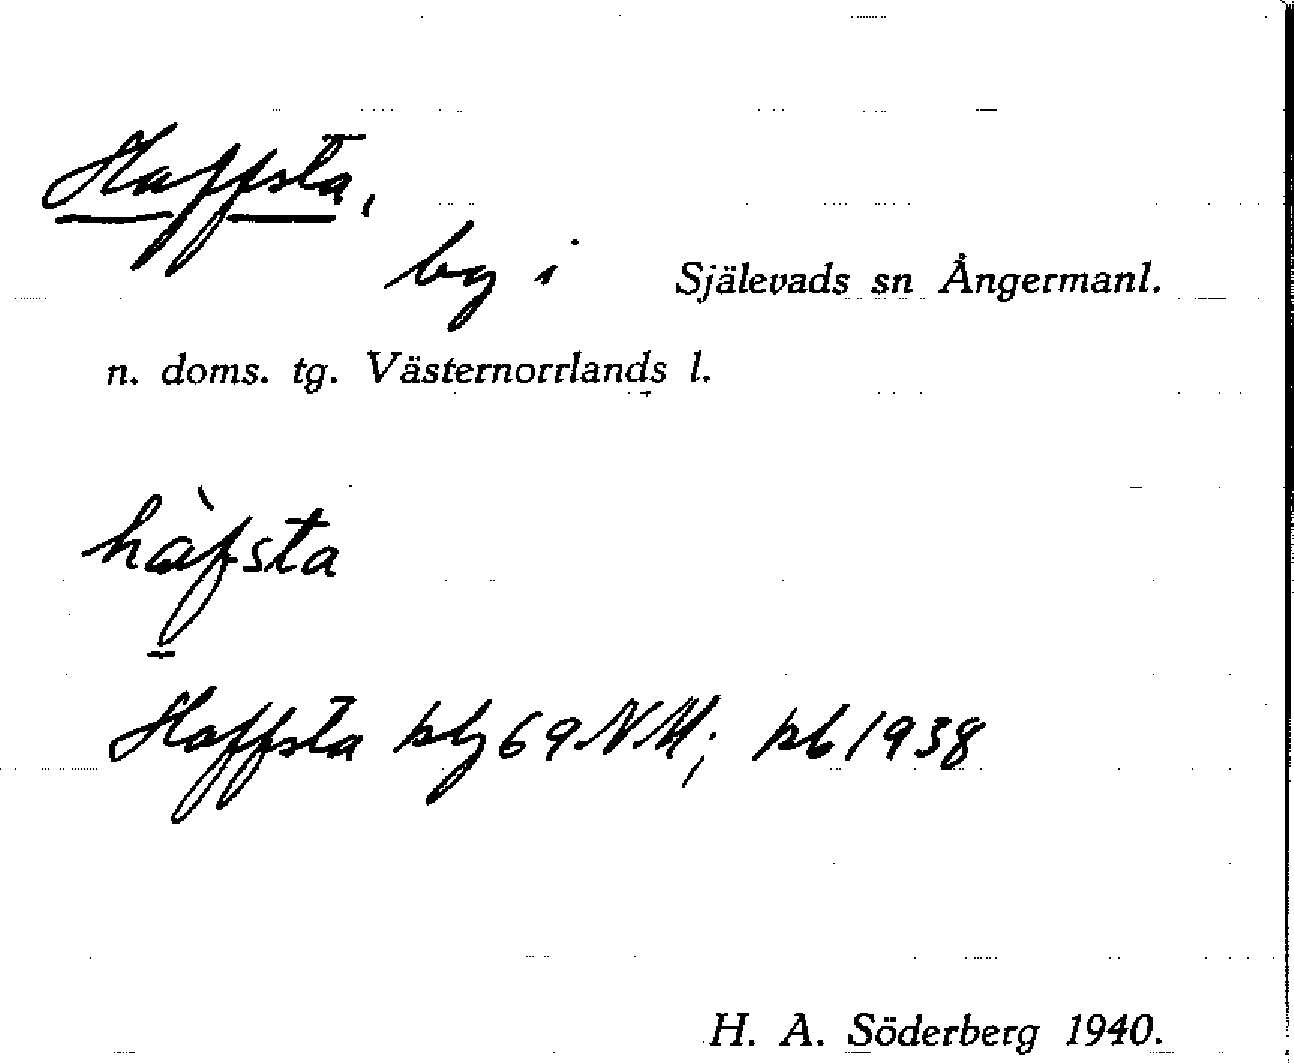 Haffsta,
by i Själevads sn Ångermanl.
n. doms. tg. Västernorrlands l.
hàfsta
Haffsta kbg 69 NM; kb 1938
H. A. Söderberg 1940.